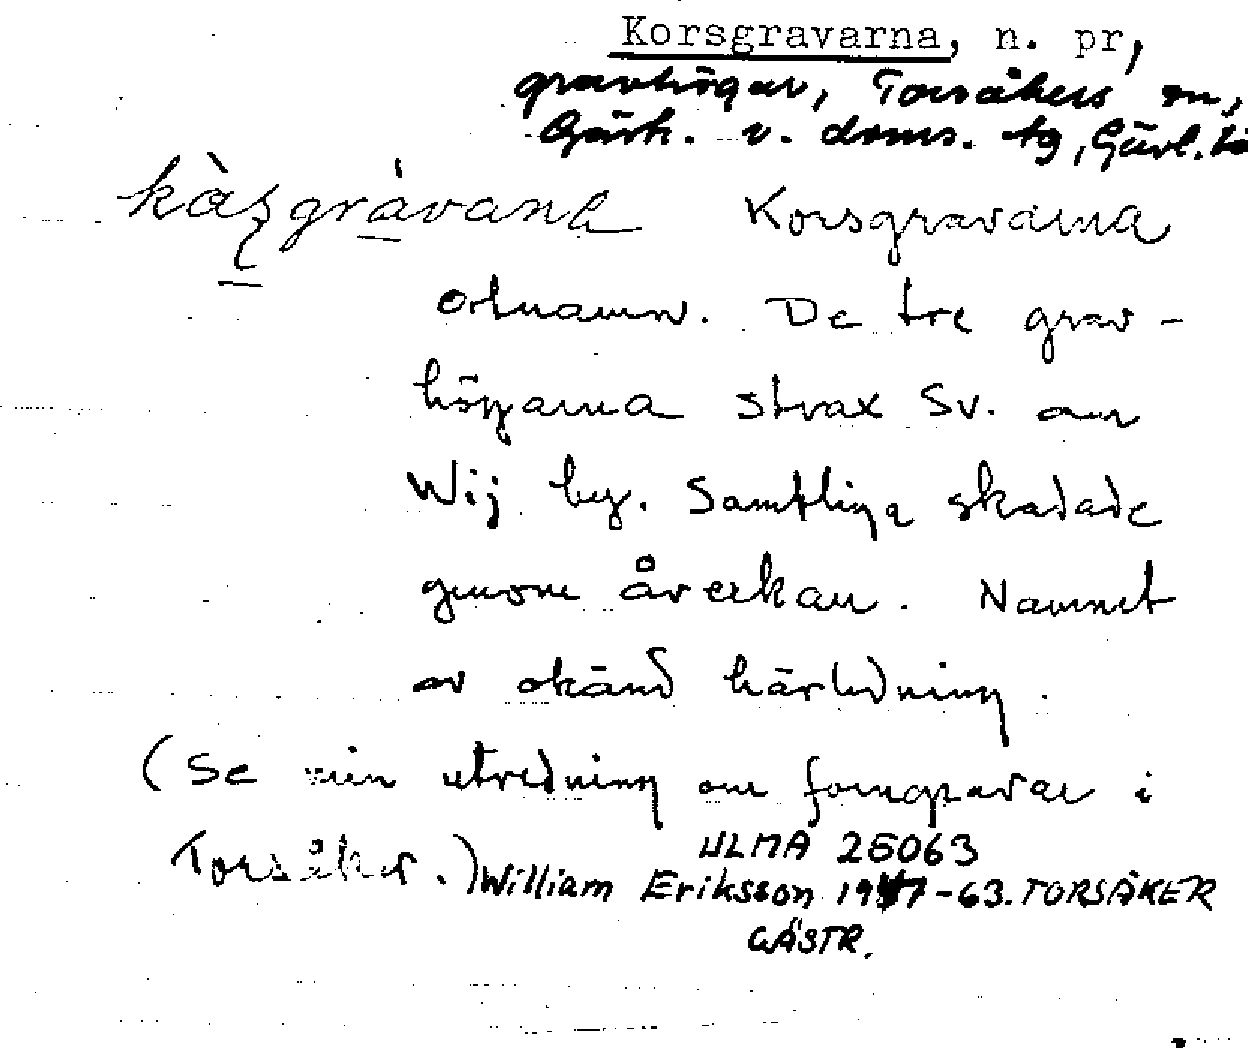 Korsgravarna, n. pr,
gravhögar, Torsåkers sn,
Gästr. v. doms. tg, Gävl. lä
Korsgravarna
ortnamn. De tre grav-
högarna strax Sv. om
Wij by. Samtliga skadade
genom åverkan. Namnet
av okänd härledning.
(Se min utredning om forngravar i
Torsåker.)
ULMA 26063
William Eriksson 1947-63. TORSÅKER
GÄSTR.